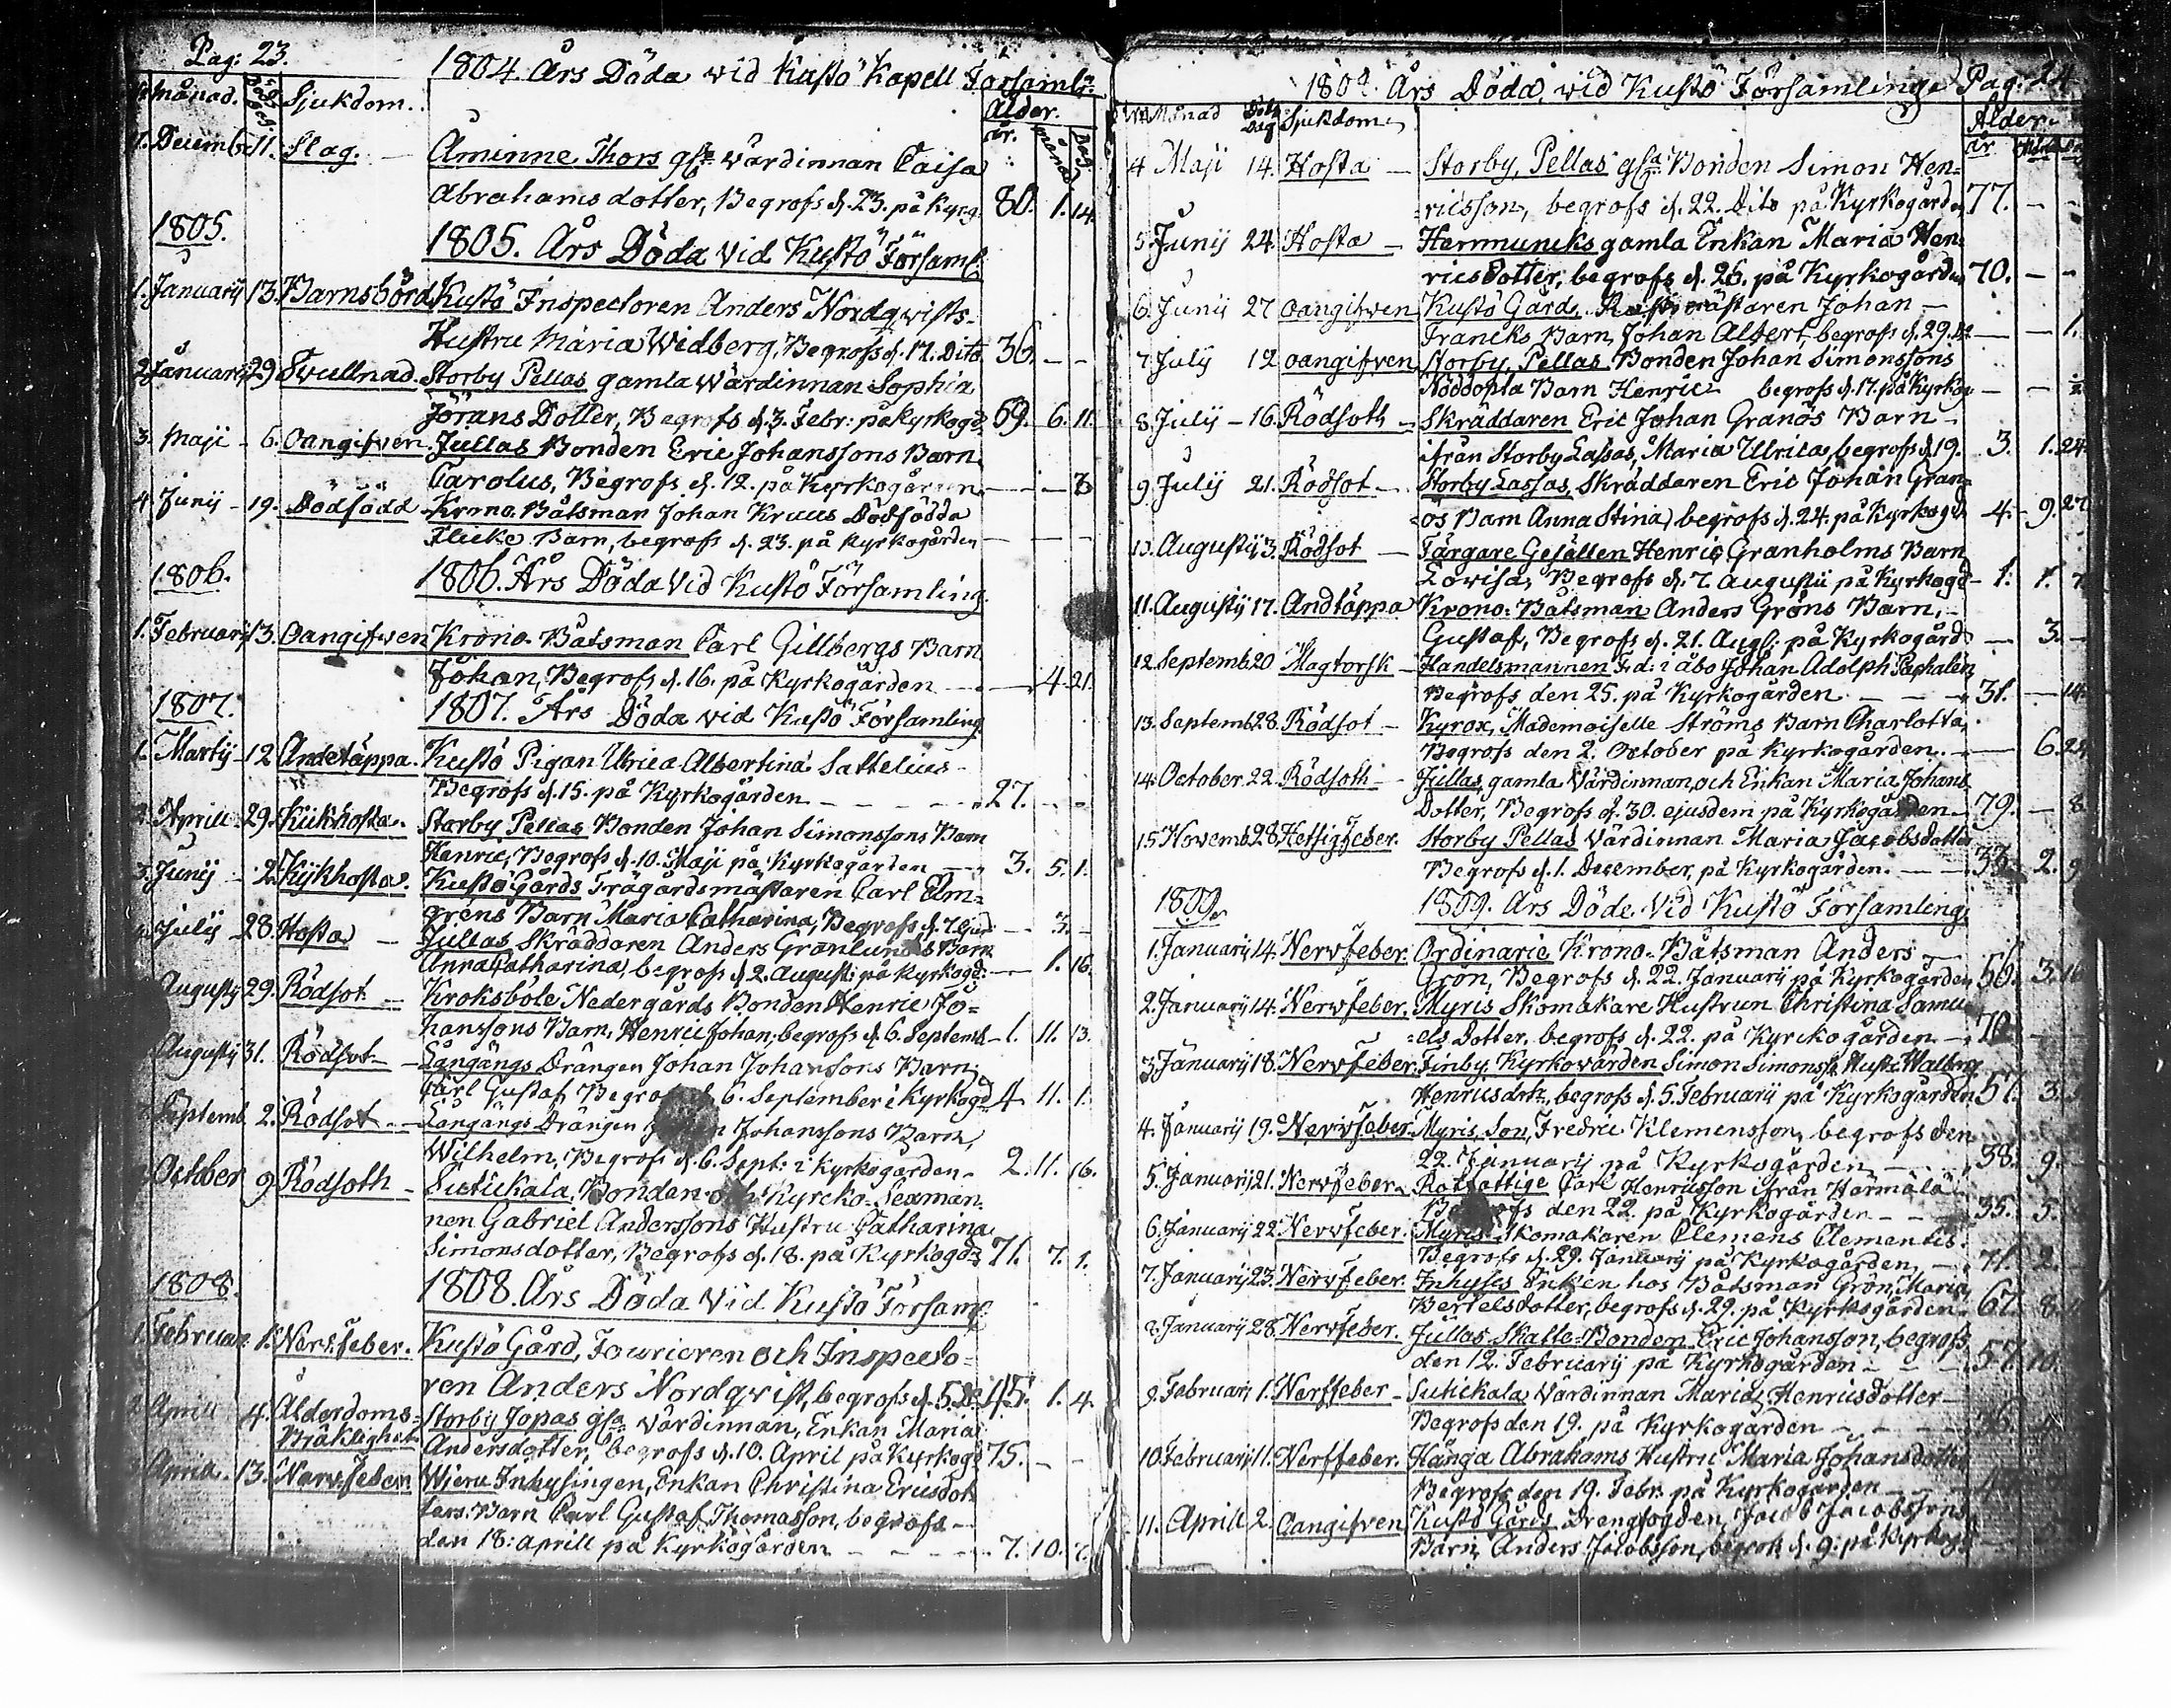 Pag: 23.
1804. Års Döda wid Kustö Kapell Församl:
månad. Sjukdom. Ålder.
år. månad Dag
1. Decemb 11. Slag. Åminne Thors wärdinnan Caisa
Abrahams dotter, Begrofs d. 23. på Kyrg. 80. 1. 14.
1805. 1805. Års Döda Vid Kustö Församl.
1. Januarij 13. Barnsbörd Kustö Inspectoren Anders Nordqwists
Hustru Maria Widberg, Begrofs d. 17. Dito. 36. — —
2. Januarij 29. Swullnad. Storby Pellas gamla wärdinnan Sophia
Jörans Dotter, Begrofs d. 3. Febr: på Kyrkogd. 69. 6. 11.
3. Maji - 6. Oangifven. Jullas Bonden Eric Johanssons Barn
Carolus, Begrofs d. 12. på Kyrkogården — —
4. Junij - 19. Dödfödd - Krono-Båtsman Johan Kruus Dödfödda
Flicke Barn, begrofs d. 23. på Kyrkogården — — —
1806. 1806. Års Döda Vid Kustö Församling.
1. Februarij 13. Oangifven Krono-Båtsman Carl Gillbergs Barn
Johan, Begrofs d. 16. på Kyrkogården — 4. 21.
1807. 1807. Års Döda vid Kustö Församling.
1. Martij - 12 Andetäppa. Kustö Pigan Ulrica Albertina Sattelius -
Begrofs d. 15. på Kyrkogården - - - 27. - -
2. Aprill 29. Kiikhosta. Storby Pellas Bonden Johan Simonssons Barn
Henric, Begrofs d. 10. Maji på Kyrkogården — 3. 5. 1.
3. Junij - 2. Kijkhosta. Kustö Gårds Trägårdsmästaren Carl Elm=
gréns Barn Maria Catharina, Begrofs d. 7. — 3. -
Julij 28. Hosta - Jullas Skräddaren Anders Grönlunds Barn
Anna Catharina, begrofs d. 2. August: på Kyrkogd: — 1. 16.
Augustij 29. Rödsot - Kroksböle Nedergårds Bonden Henric Jo=
hanssons Barn, Henric Johan, begrofs d. 6. Septemb - 1. 11. 13.
Augustij 31. Rödsot - Långängs Drängen Johan Johanssons Barn,
Carl Gustaf, Begrofs d. 6. September i Kyrkogd 4 11. 1.
Septemb. 2. Rödsot - Långängs Drängen Johanssons Barn,
Wilhelm, Begrofs d. 6. Sept: i Kyrkogården - 2. 11. 16.
October 9. Rödsoth - Sutickala, Bonden och Kyrcko-Sexman=
nen Gabriel Anderssons Hustru Catharina
Simonsdotter, Begrofs d. 18. på Kyrkogd: 71. 7. 1.
1808. 1808. Års Döda Vid Kustö Försam:
Februar. 1. Nervfeber. Kustö Gård, Fourieren och Inspecto=
ren Anders Nordqwist, begrofs d. 5. 45. 1. 4.
Aprill 4. Ålderdoms= Storby Jopas wärdinnan, Enkan Maria
Bräklighet Andersdotter, begrofs d. 10. April på Kyrkogd 75. - -
Aprill. 13. Nervfeber. Wjeru Inhysingen, Enkan Christina Ericsdot=
ters Barn Carl Gustaf Thomasson, begrofs -
den 18: aprill på Kyrkogården - - - 7. 10. 7.
1808. Års Döda, vid Kustö Församlinge Pag: 24
Månad Döds Dag Sjukdom Ålder.
år Mån
4 Maji 14. Hosta - Storby, Pellas Bonden Simon Hen=
ricsson, begrofs d. 22. Dito på Kyrkogården 77. - -
5. Junij 24. Hosta - Hemmuncks gamla Enkan Maria Hen=
rics Dotter, begrofs d. 26. på Kyrkogården 70. - -
6. Junij 27 Oangifven Kustö Gård, Johan -
Francks Barn, Johan Albert, begrofs d. 29. — — 1.
7. Julij 12 Oangifven Storby, Pellas Bonden Johan Simonssons
Nöddöpta Barn Henric begrofs d. 17. på Kyrkog - -
8. Julij - 16. Rödsoth - Skräddaren Eric Johan Granös Barn -
ifrån Storby Lassas, Maria Ulrica, begrofs d. 19. 3. 1. 24.
9. Julij 21. Rödsot - Storby Lassas, Skräddaren Eric Johan Gran=
ös Barn Anna Stina, begrofs d. 24. på Kyrkogd 4. - 9. 27
10. Augustij 3. Rödsot - Färgare Gesällen Henric Granholms Barn
Lovisa, Begrofs d. 7. Augustii på Kyrkogd - 1. 1. 7
11. Augustij 17. Andtäppa Krono-Båtsman Anders Gröns Barn, -
Gustaf, Begrofs d. 21. Aug: på Kyrkogård — 3. -
12. Septemb. 20 Magtorsk - Handelsmannen i Åbo Johan Adolph
Begrofs den 25. på Kyrkogården - - - 31. — 14.
13. Septemb. 28. Rödsot - Kyrox, Mademoiselle Ströms Barn Charlotta,
Begrofs den 2. October på Kyrkogården. — 6. 24
14. October. 22. Rödsoth - Jullas, gamla Värdinnan, och Enkan Maria Johans
Dotter, Begrofs d. 30. ejusdem på Kyrkogården - 79. - 8
15. Novemb. 28. Hettig Feber. Storby Pellas Värdinnan Maria Jacobsdotter
Begrofs d. 1. December, på Kyrkogården. — 33. 2. 9
1809. 1809. Års Döde Vid Kustö Församling.
1. Januarij 14. Nervfeber. Ordinarie Krono-Båtsman Anders -
Grön, Begrofs d. 22. Januarij på Kyrkogården 56. 3.
2. Januarij 14. Nervfeber. Myris Skomakare Hustrun Christina Samu=
els Dotter, begrofs d. 22. på Kyrckogården - 70 - -
3. Januarij 18. Nervfeber. Finby, Kyrkovärden Simon Simonss: Hustr. Walborg
Henricsdotr, begrofs d. 5. Februarij på Kyrkogården 57. 3.
4. Januarij 19. Nervfeber. Myris, Son, Fredric Klemensson, begrofs den
22. Januarij på Kyrkogården - - 38. 9.
5. Januarij 21. Nervfeber. Rotfattige Carl Henricsson ifrån Harmälä
Begrofs den 22. på Kyrkogården - - 35. 5.
6. Januarij 22. Nervfeber. Myris Skomakaren Clemens Clementis.
Begrofs d. 29. Januarij på Kyrkogården - 71. 2.
7. Januarij 23. Nervfeber. Inhyses Enken hos Båtsman Grön, Maria
Bertelsdotter, begrofs d. 29. på Kyrkogården 67. 8.
8. Januarij 28. Nervfeber. Jullas Skatte-Bonden Eric Johansson, begrofs
den 12. Februarij på Kyrkogården - - 57. 10.
9. Februarij 1. Nerffeber - Sutickala Värdinnan Maria Henricsdotter -
Begrofs den 19. på Kyrkogården - -
10. Februarij 11. Nerffeber. Hånga Abrahams Hustru Maria Johansdotter
Begrofs den 19. Febr. på Kyrkogården -
11. Aprill 2. Oangifven Kustö Gårds Drengfogden, Jacob Jacobssons
Barn, Anders Jacobsson, begrofs d. 9. på Kyrkogd